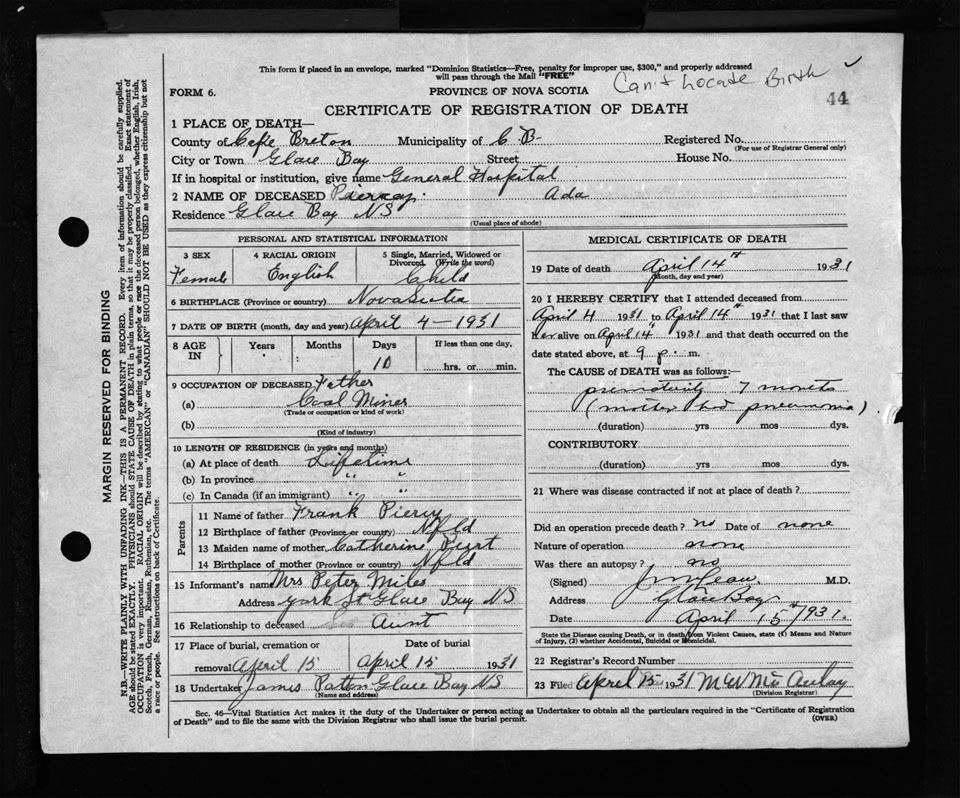 This form if placed in an envelope, marked "Dominion Statistics—Free, penalty for improper use, $300," and properly addressed
will pass through the Mail "FREE"
Can't Locate Birth ✓
FORM 6.
PROVINCE OF NOVA SCOTIA
44
CERTIFICATE OF REGISTRATION OF DEATH
1 PLACE OF DEATH—
County of Cape Breton Municipality of C B- Registered No.
(For use of Registrar General only)
City or Town Glace Bay Street House No.
If in hospital or institution, give name General Hospital
2 NAME OF DECEASED Piercy. Ada
Residence Glace Bay NS
(Usual place of abode)
PERSONAL AND STATISTICAL INFORMATION
3 SEX 4 RACIAL ORIGIN 5 Single, Married, Widowed or
Divorced. (Write the word)
Female English Child
6 BIRTHPLACE (Province or country) Nova Scotia
7 DATE OF BIRTH (month, day and year) April 4 - 1931
8 AGE IN Years Months Days If less than one day,
10 hrs. or min.
9 OCCUPATION OF DECEASED Father
(a) Coal Miner
(Trade or occupation or kind of work)
(b)
(Kind of industry)
10 LENGTH OF RESIDENCE (in years and months)
(a) At place of death Lifetime
(b) In province " "
(c) In Canada (if an immigrant) " "
Parents
11 Name of father Frank Piercy
12 Birthplace of father (Province or country) Nfld
13 Maiden name of mother Catherine
14 Birthplace of mother (Province or country) Nfld
15 Informant's name Mrs Peter Miles
Address York St Glace Bay NS
16 Relationship to deceased Aunt
17 Place of burial, cremation or Date of burial
removal April 15 April 15 1931
18 Undertaker James Patton Glace Bay NS
(Name and address)
MEDICAL CERTIFICATE OF DEATH
19 Date of death April 14th 1931
(Month, day and year)
20 I HEREBY CERTIFY that I attended deceased from
April 4 1931 to April 14th 1931 that I last saw
her alive on April 14th 1931 and that death occurred on the
date stated above, at 9 p. m.
The CAUSE of DEATH was as follows:
prematurity 7 months
(mother had pneumonia)
(duration) yrs mos dys.
CONTRIBUTORY
(duration) yrs. mos. dys.
21 Where was disease contracted if not at place of death?
Did an operation precede death? no Date of none
Nature of operation none
Was there an autopsy? no
(Signed) M.D.
Address Glace Bay
Date April 15th/931.
State the Disease causing Death, or in death from Violent Causes, state (1) Means and Nature
of Injury, (2) whether Accidental, Suicidal or Homicidal.
22 Registrar's Record Number
23 Filed April 15 1931 McAulay
(Division Registrar)
Sec. 46—Vital Statistics Act makes it the duty of the Undertaker or person acting as Undertaker to obtain all the particulars required in the "Certificate of Registration
of Death" and to file the same with the Division Registrar who shall issue the burial permit.
(OVER)
MARGIN RESERVED FOR BINDING
N.B.—WRITE PLAINLY WITH UNFADING INK—THIS IS A PERMANENT RECORD. Every item of information should be carefully supplied.
AGE should be stated EXACTLY. PHYSICIANS should STATE CAUSE OF DEATH in plain terms, so that it may be properly classified. Exact statement of
OCCUPATION is very important. RACIAL ORIGIN will be described by stating to what people or race the deceased person belonged, whether English, Irish,
Scotch, French, German, Russian, Ruthenian, etc. The terms "AMERICAN" or "CANADIAN" SHOULD NOT BE USED as they express citizenship but not
a race or people. See instructions on back of Certificate.